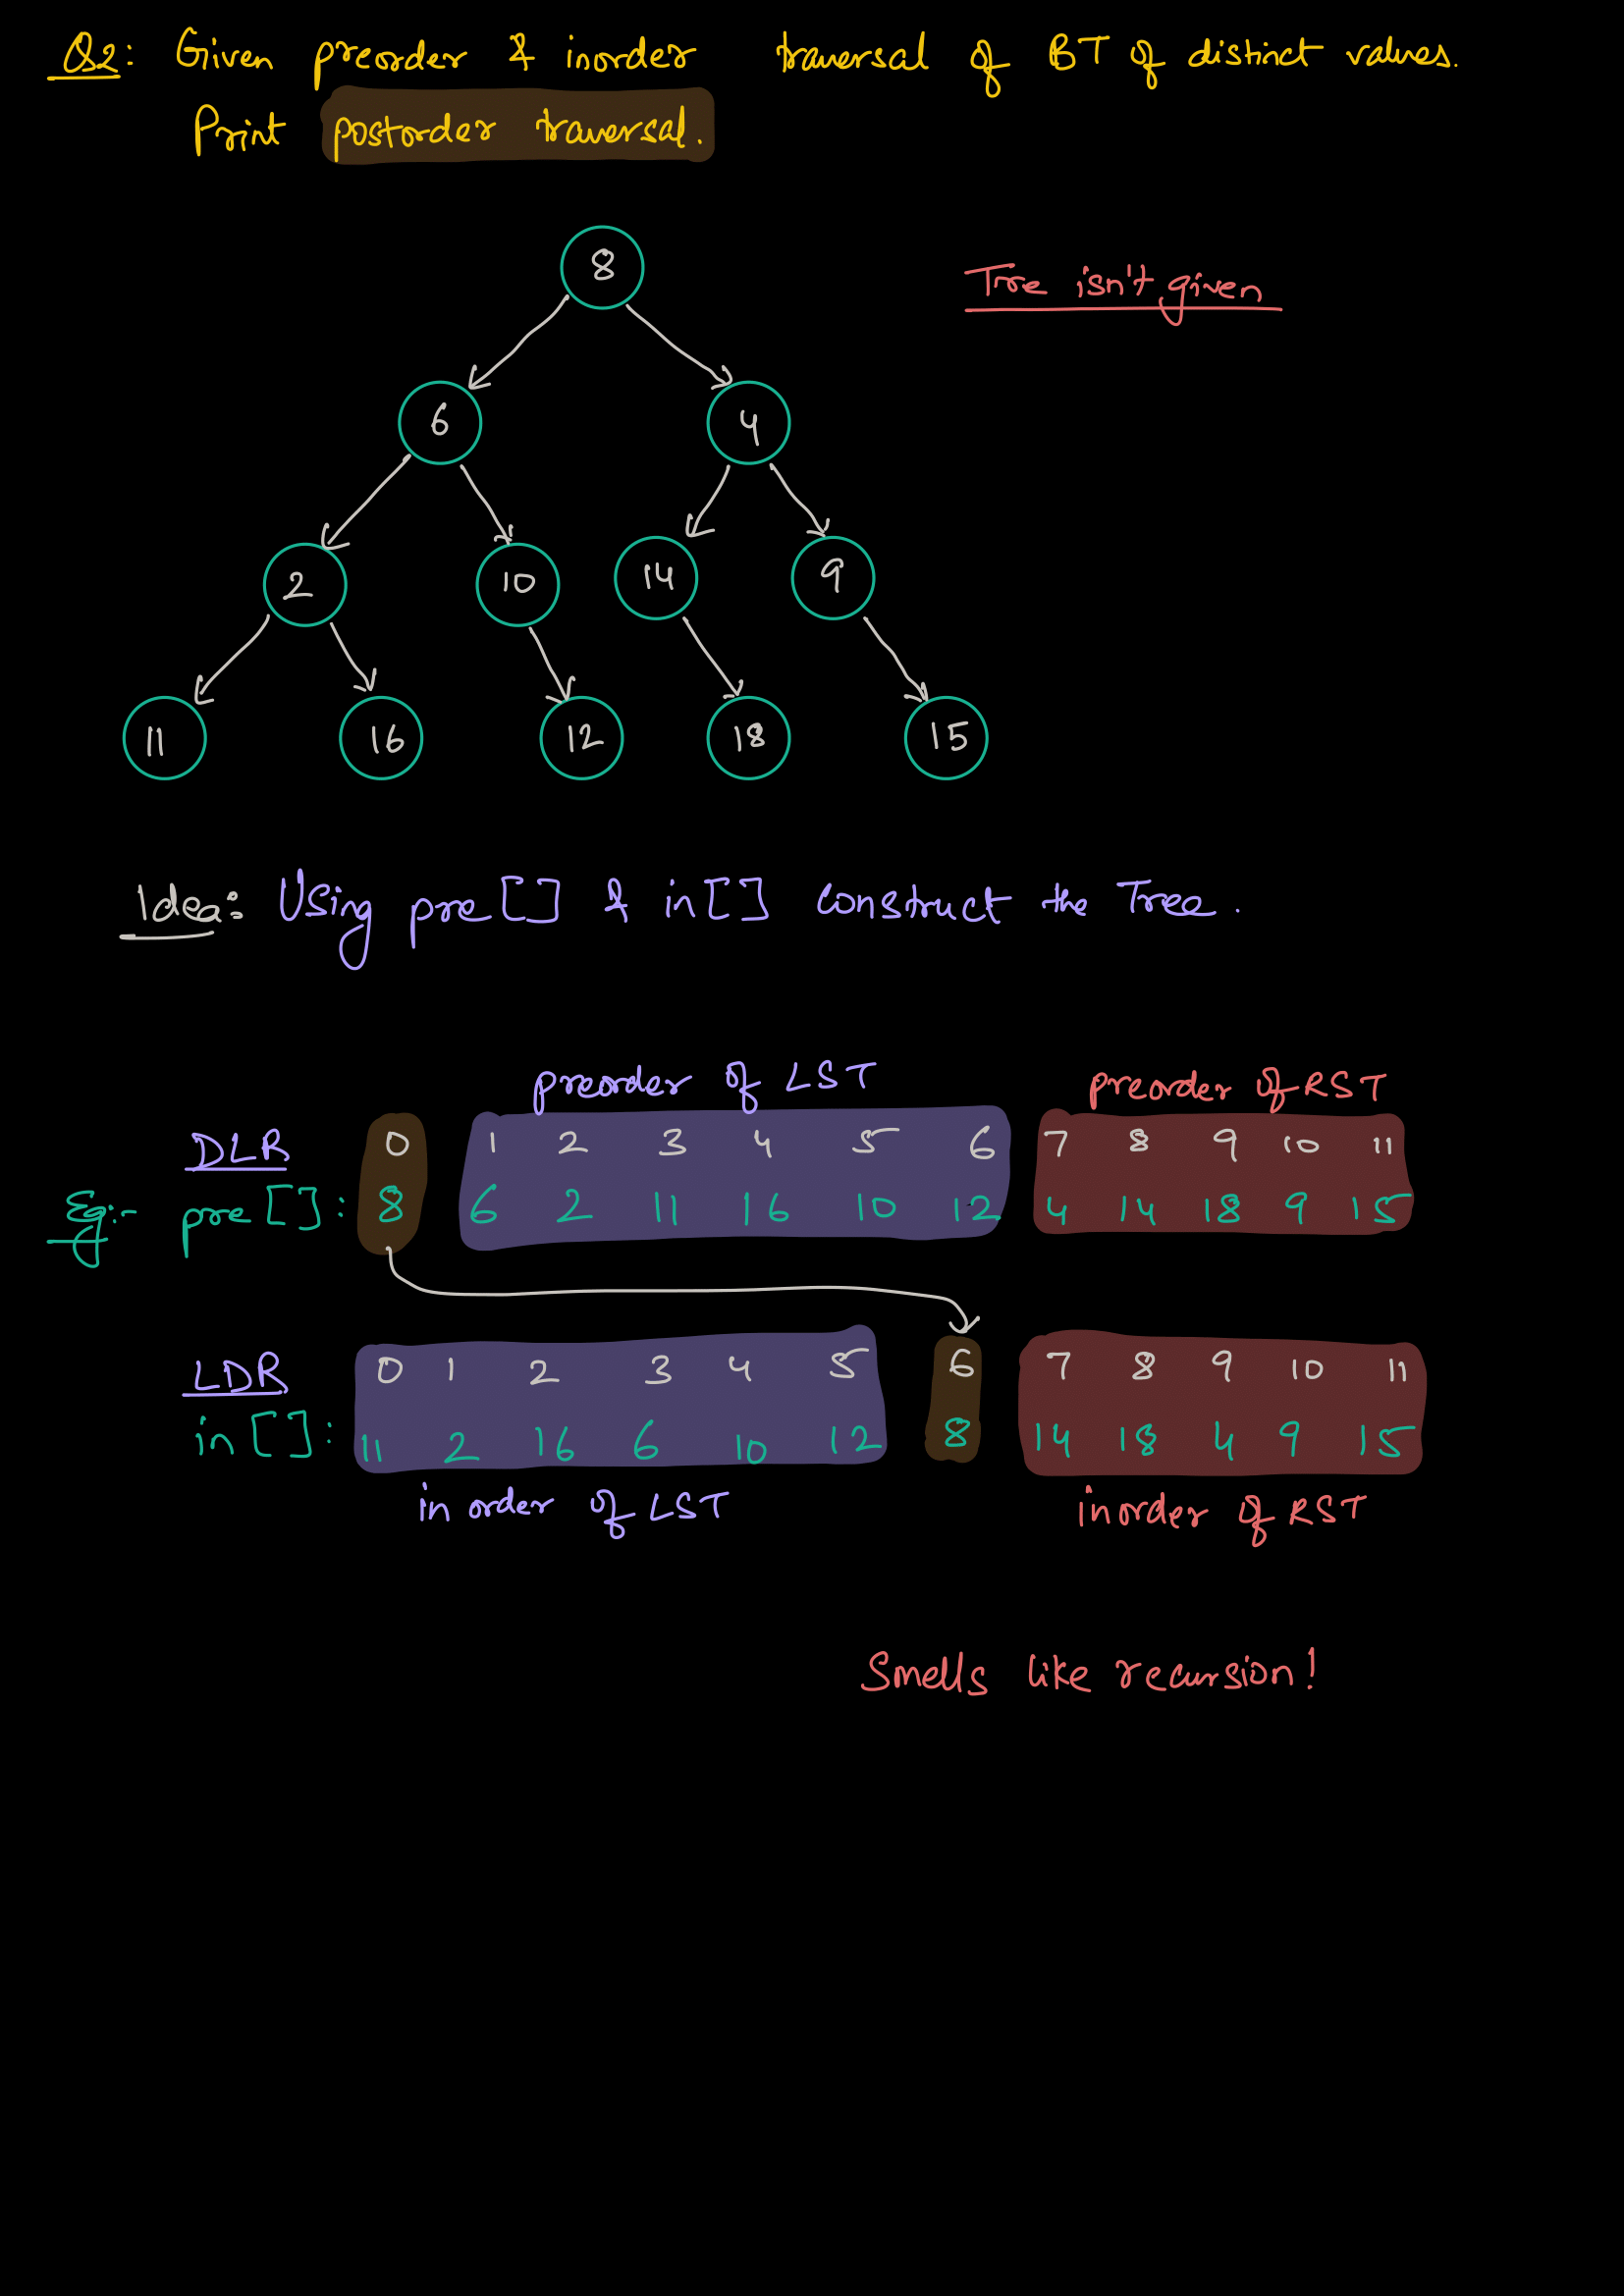 Q2: Given preorder & inorder traversal of BT of distinct values.
Print postorder traversal.
8
Tree isn't given
6 4
2 10 14 9
11 16 12 18 15
Idea: Using pre[] & in[] construct the Tree.
preorder of LST preorder of RST
DLR 0 1 2 3 4 5 6 7 8 9 10 11
Eg:- pre[]: 8 6 2 11 16 10 12 4 14 18 9 15
LDR 0 1 2 3 4 5 6 7 8 9 10 11
in[]: 11 2 16 6 10 12 8 14 18 4 9 15
in order of LST inorder of RST
Smells like recursion!